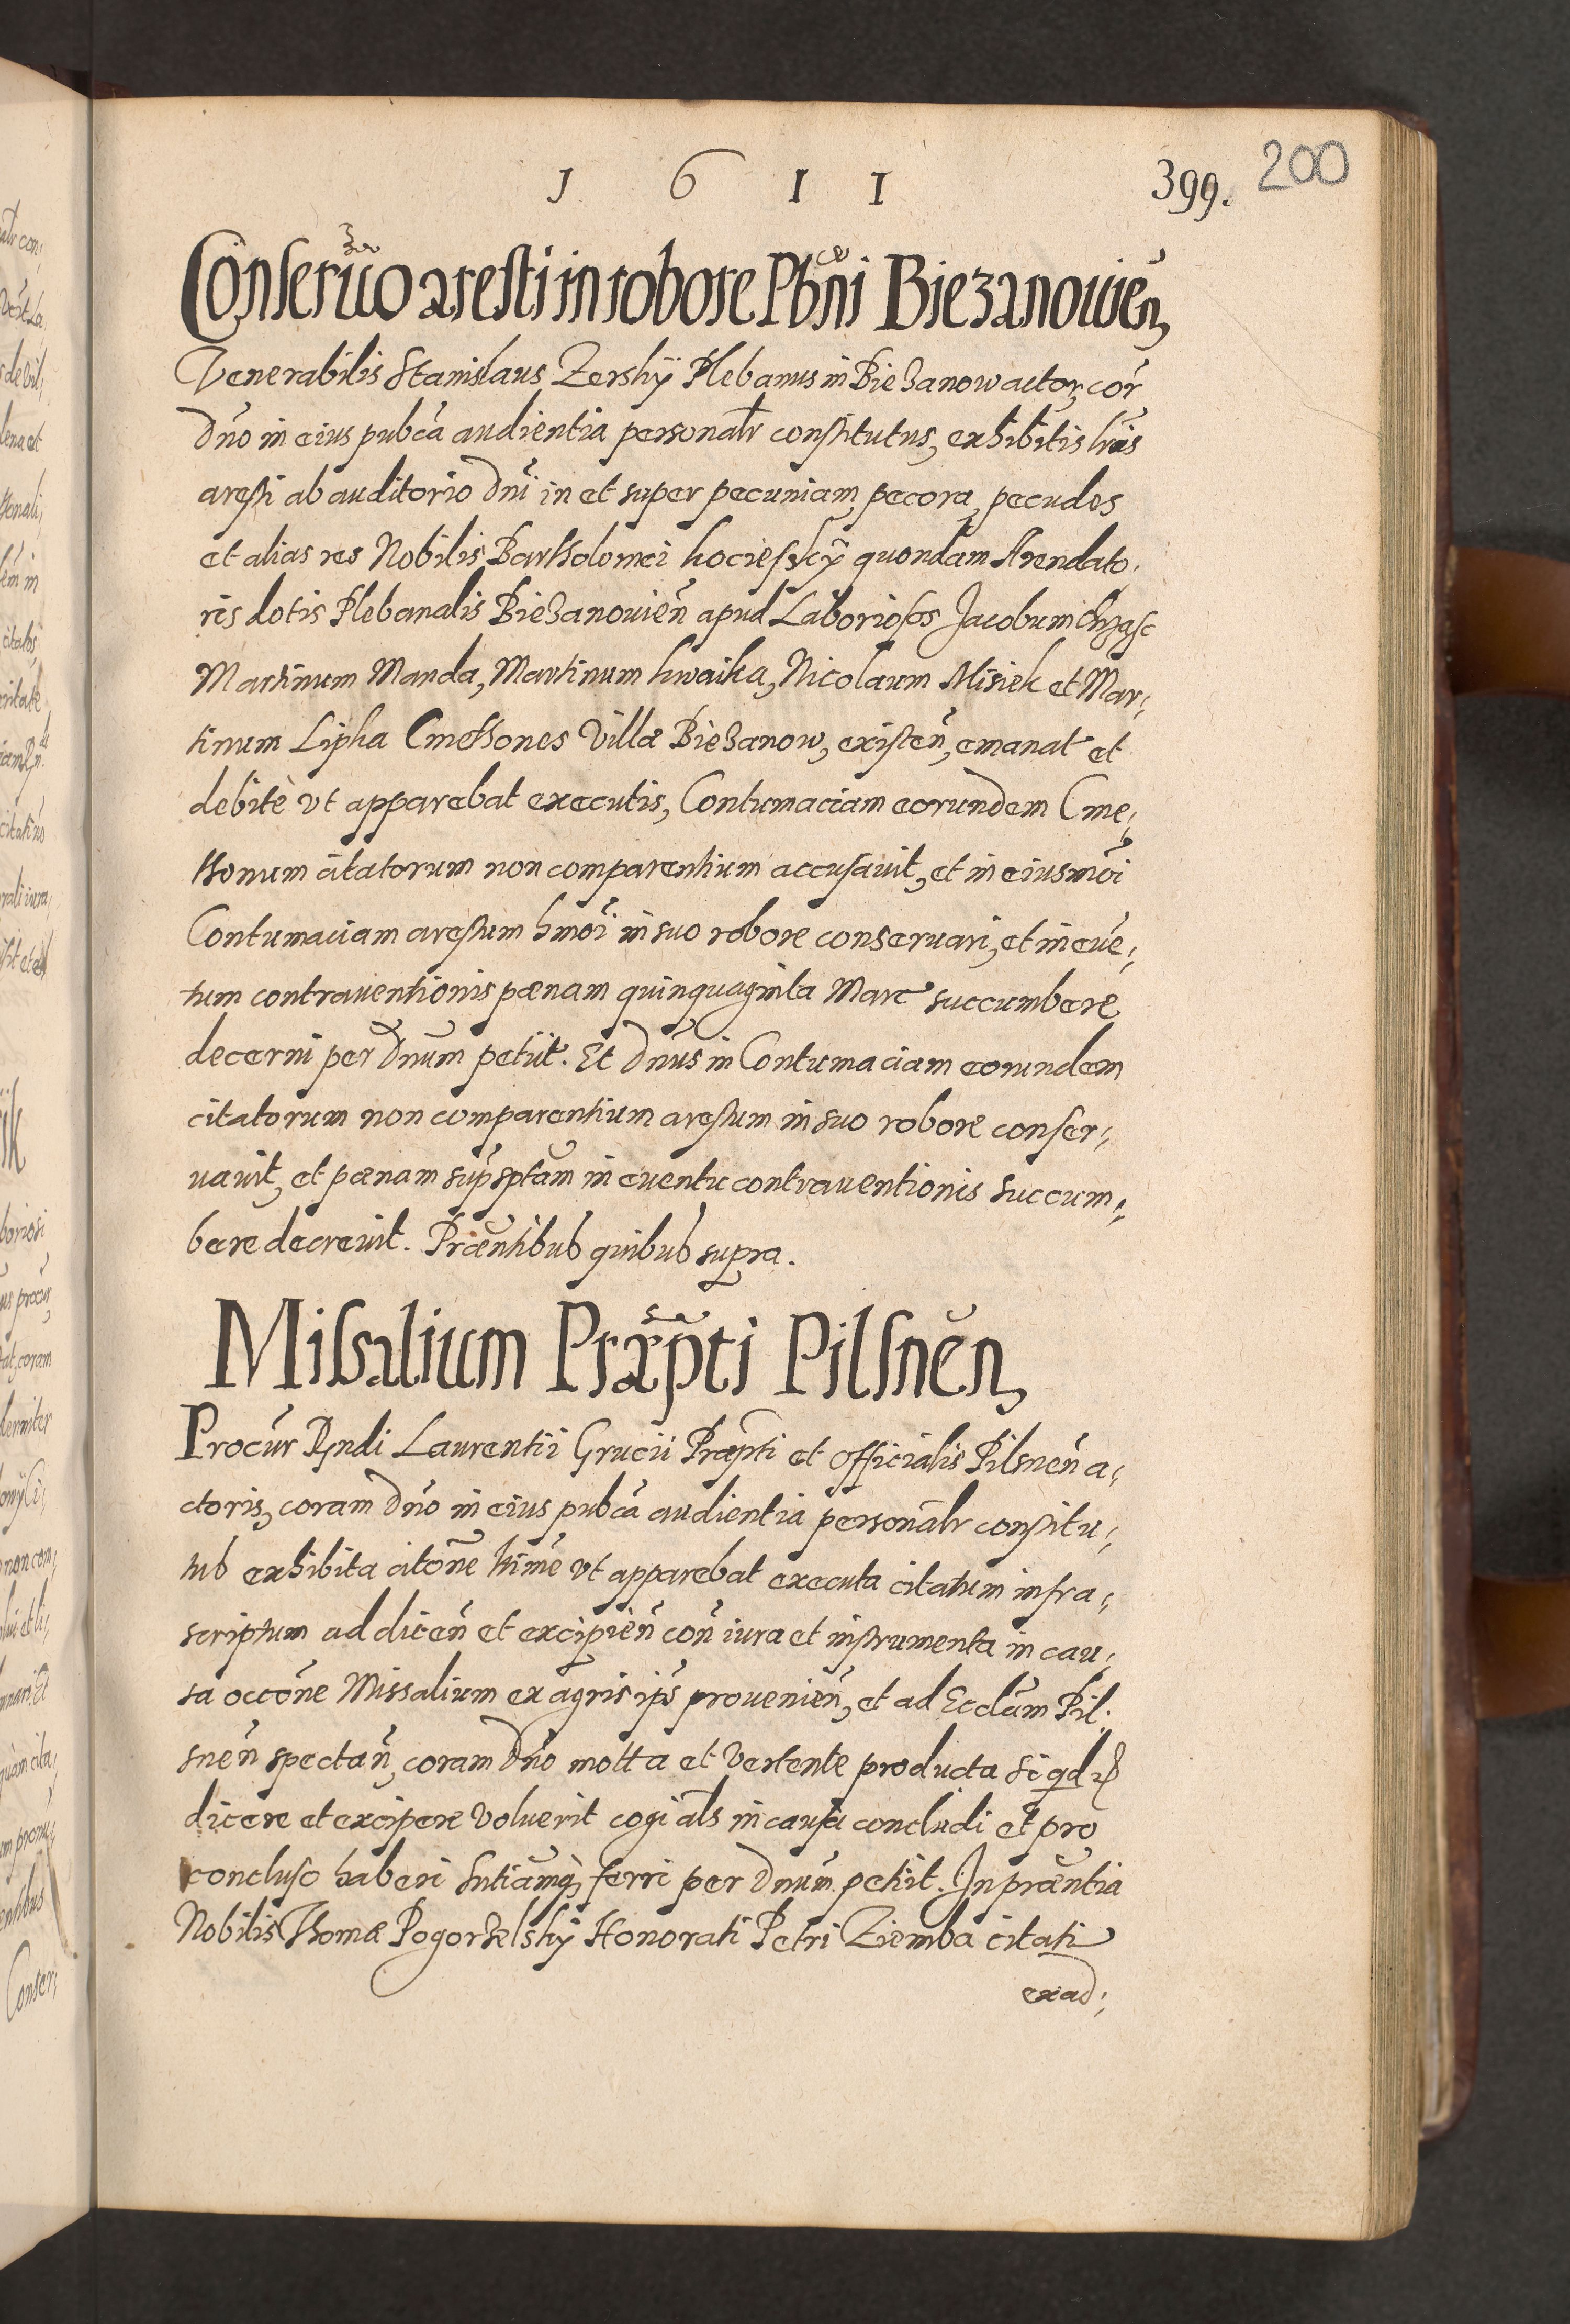 1 6 11 399. 200
Conseruo aresti in robore Pbni Biezanowien,
Venerabilis Stanislaus Zerskÿ Plebanus in Biezanow actor, cor
dno in eius pubca audientia personalr constitutus, exhibitis lris
aresti ab auditorio dni in et super pecuniam, pecora, pecudes
et alias res Nobilis Bartholomei kocieskÿ quondam Arendato,
ris dotis Plebanalis Biezanowien apud Laboriosos Jacobum
Martinum Manda, Martinum kwaika, Nicolaum Misiek et Mar,
tinum Lipka Cmethones Villæ Biezanow, existen, emanat et
debitè vt apparebat executis, Contumaciam eorundem Cme,
thonum citatorum non comparentium accusauit, et in eiusmoi
Contumaciam arestum hmoi in suo robore conseruari, et in eue,
tum contrauentionis pænam quinquaginta Marc succumbere
decerni per Dnum petiit. Et Dnus in Contumaciam eorundem
citatorum non comparentium arestum in suo robore conser,
uauit, et pænam supsptam in euentu contrauentionis succum,
bere decreuit. Præntibus quibus supra.
Missalium Præpti Pilsnen,
Procur Rndi Laurentii Grucii Præpti et Officialis Pilsnen a,
ctoris, coram dno in eius pubca audientia personalr constitu,
tus exhibita citone ltime vt apparebat executa citatum infra,
scriptum ad dicen et excipien con iura et instrumenta in cau,
sa occone Missalium ex agris ips prouenien, et ad Ecclam Pil,
snen spectan, coram Dno motta et vertente producta si qd
dicere et excipere voluerit cogi als in causa concludi et pro
concluso haberi sntiamq ferri per Dnum petiit. In præntia
Nobilis Thomæ Pogorzelskÿ Honorati Petri Ziemba citati
exad,